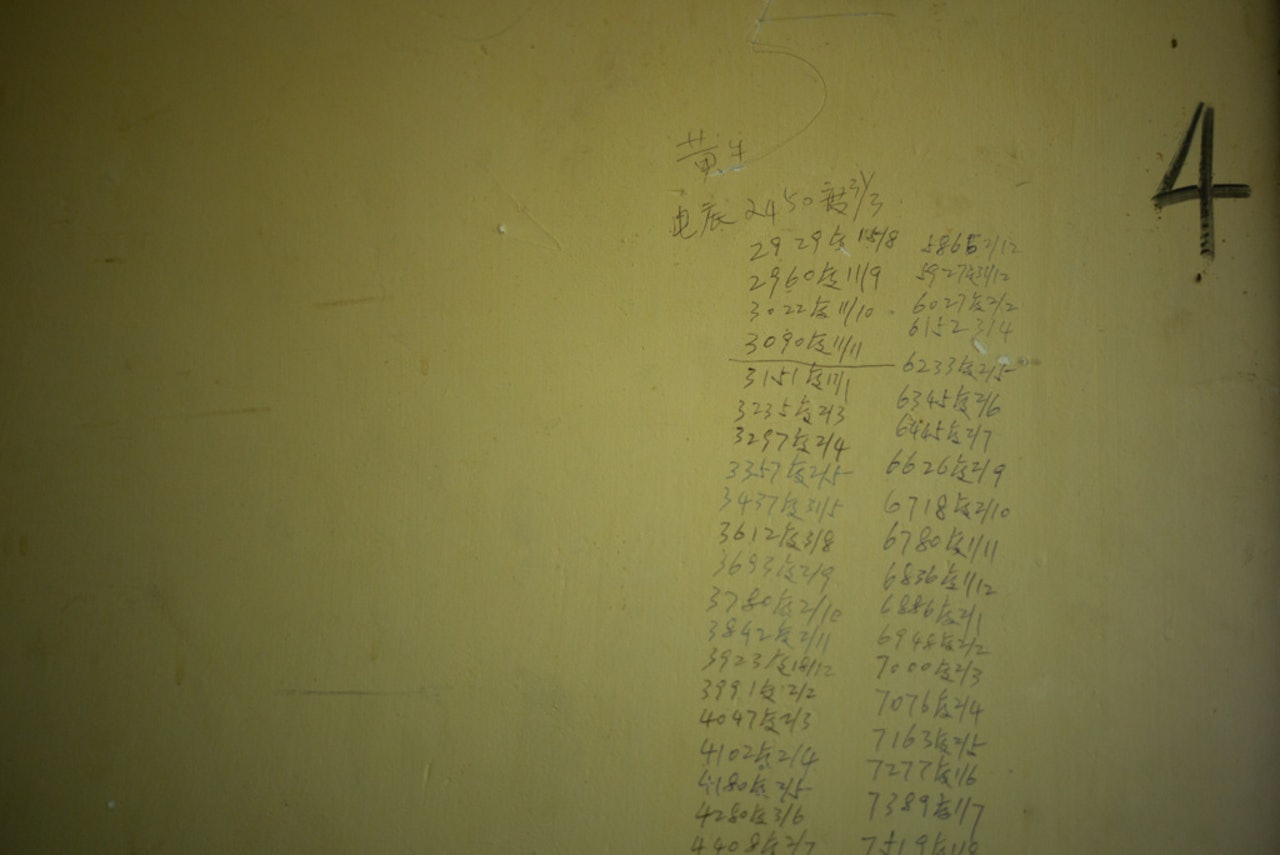 5
4
黄生
电底2450度31/3
2929度15/8
2960度11/9
3022度11/10
3090度11/11
3151度17/1
3235度2/3
3297度2/4
3357度2/5
3437度31/5
3612度3/8
3693度2/9
3780度2/10
3842度2/11
3923度18/12
3991度2/2
4047度2/3
4102度2/4
4180度2/5
4280度3/6
4408度2/7
5865 2/12
5927度31/12
6027度2/2
6152 3/4
6233度2/5
6345度2/6
6445度2/7
6626度2/9
6718度2/10
6780度1/11
6836度1/12
6886度2/1
6948度2/2
7000度2/3
7076度2/4
7163度2/5
7277度1/6
7389度1/7
7519度1/8